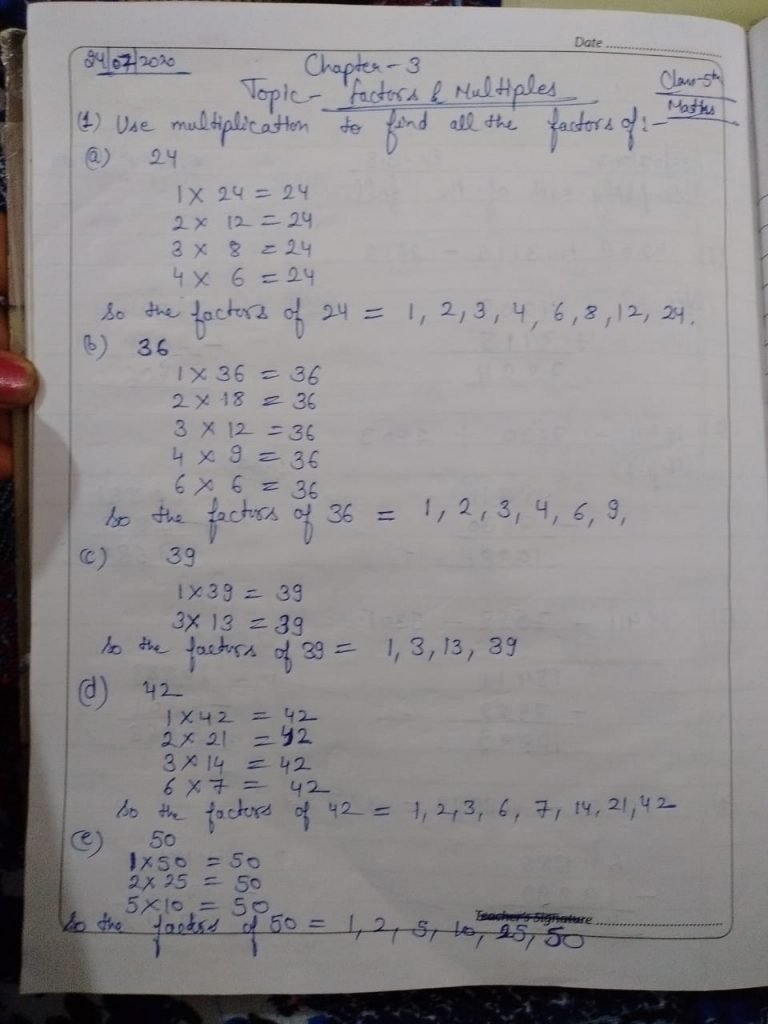 Date
24/07/2020
Chapter-3
Topic- Factors & Multiples
Class-5th
Maths
(1) Use multiplication to find all the factors of:-
(a) 24
1 × 24 = 24
2 × 12 = 24
3 × 8 = 24
4 × 6 = 24
So the factors of 24 = 1, 2, 3, 4, 6, 8, 12, 24.
(b) 36
1 × 36 = 36
2 × 18 = 36
3 × 12 = 36
4 × 9 = 36
6 × 6 = 36
So the factors of 36 = 1, 2, 3, 4, 6, 9,
(c) 39
1 × 39 = 39
3 × 13 = 39
So the factors of 39 = 1, 3, 13, 39
(d) 42
1 × 42 = 42
2 × 21 = 42
3 × 14 = 42
6 × 7 = 42
So the factors of 42 = 1, 2, 3, 6, 7, 14, 21, 42
(e) 50
1 × 50 = 50
2 × 25 = 50
5 × 10 = 50
Teacher's Signature
So the factors of 50 = 1, 2, 5, 10, 25, 50